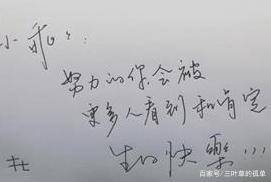 小乖:
努力的你会被
更多人看到和肯定
生的快乐...
百家号/三叶草的孤单